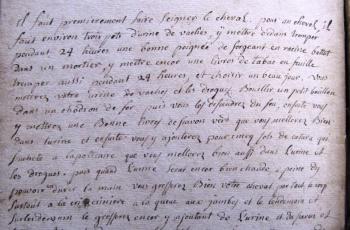 il faut premierement faire saigner le cheval, pour un cheval il
faut environ trois pots durine de vaches, y mettre dedans tremper
pendant 24 heures une bonne poignée de racine
dans un mortier, y mettre encor une livres de tabac en feuille
tremper aussi pendant 24 heures, et choisir un beau jour, vous
metterez votre urine de vaches et les drogues Bouillir un petit bouillon
dans un chodron de fer, puis vous les du feu, ensuite vous
y metterez une Bonne livres de savons verd que vous Bien
dans lurine et ensuite vous y ajouterez pour cincq sols de
à que vous Bien aussi dans Lurine et
les drogues, puis quand Lurine Serat encor bien chaude, a peine d'y
pouvoir la main vous Bien votre cheval par tout le corp
surtout à la crinière a la queue aux jambes et le et
le encor y ajoutant de Lurine et du savon et